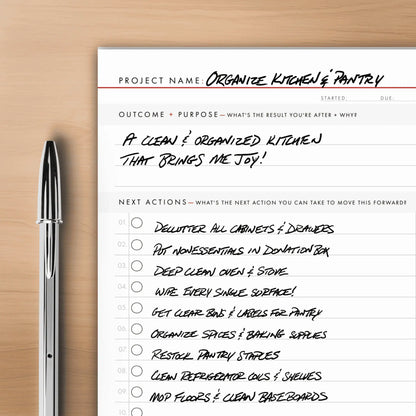 PROJECT NAME: ORGANIZE KITCHEN & PANTRY
STARTED: DUE:
OUTCOME + PURPOSE — WHAT'S THE RESULT YOU'RE AFTER + WHY?
A CLEAN & ORGANIZED KITCHEN
THAT BRINGS ME JOY!
NEXT ACTIONS — WHAT'S THE NEXT ACTION YOU CAN TAKE TO MOVE THIS FORWARD?
01 DECLUTTER ALL CABINETS & DRAWERS
02 PUT NONESSENTIALS IN DONATION BOX
03 DEEP CLEAN OVEN & STOVE
04 WIPE EVERY SINGLE SURFACE!
05 GET CLEAR BINS & LABELS FOR PANTRY
06 ORGANIZE SPICES & BAKING SUPPLIES
07 RESTOCK PANTRY STAPLES
08 CLEAN REFRIGERATOR COILS & SHELVES
09 MOP FLOORS & CLEAN BASEBOARDS
10